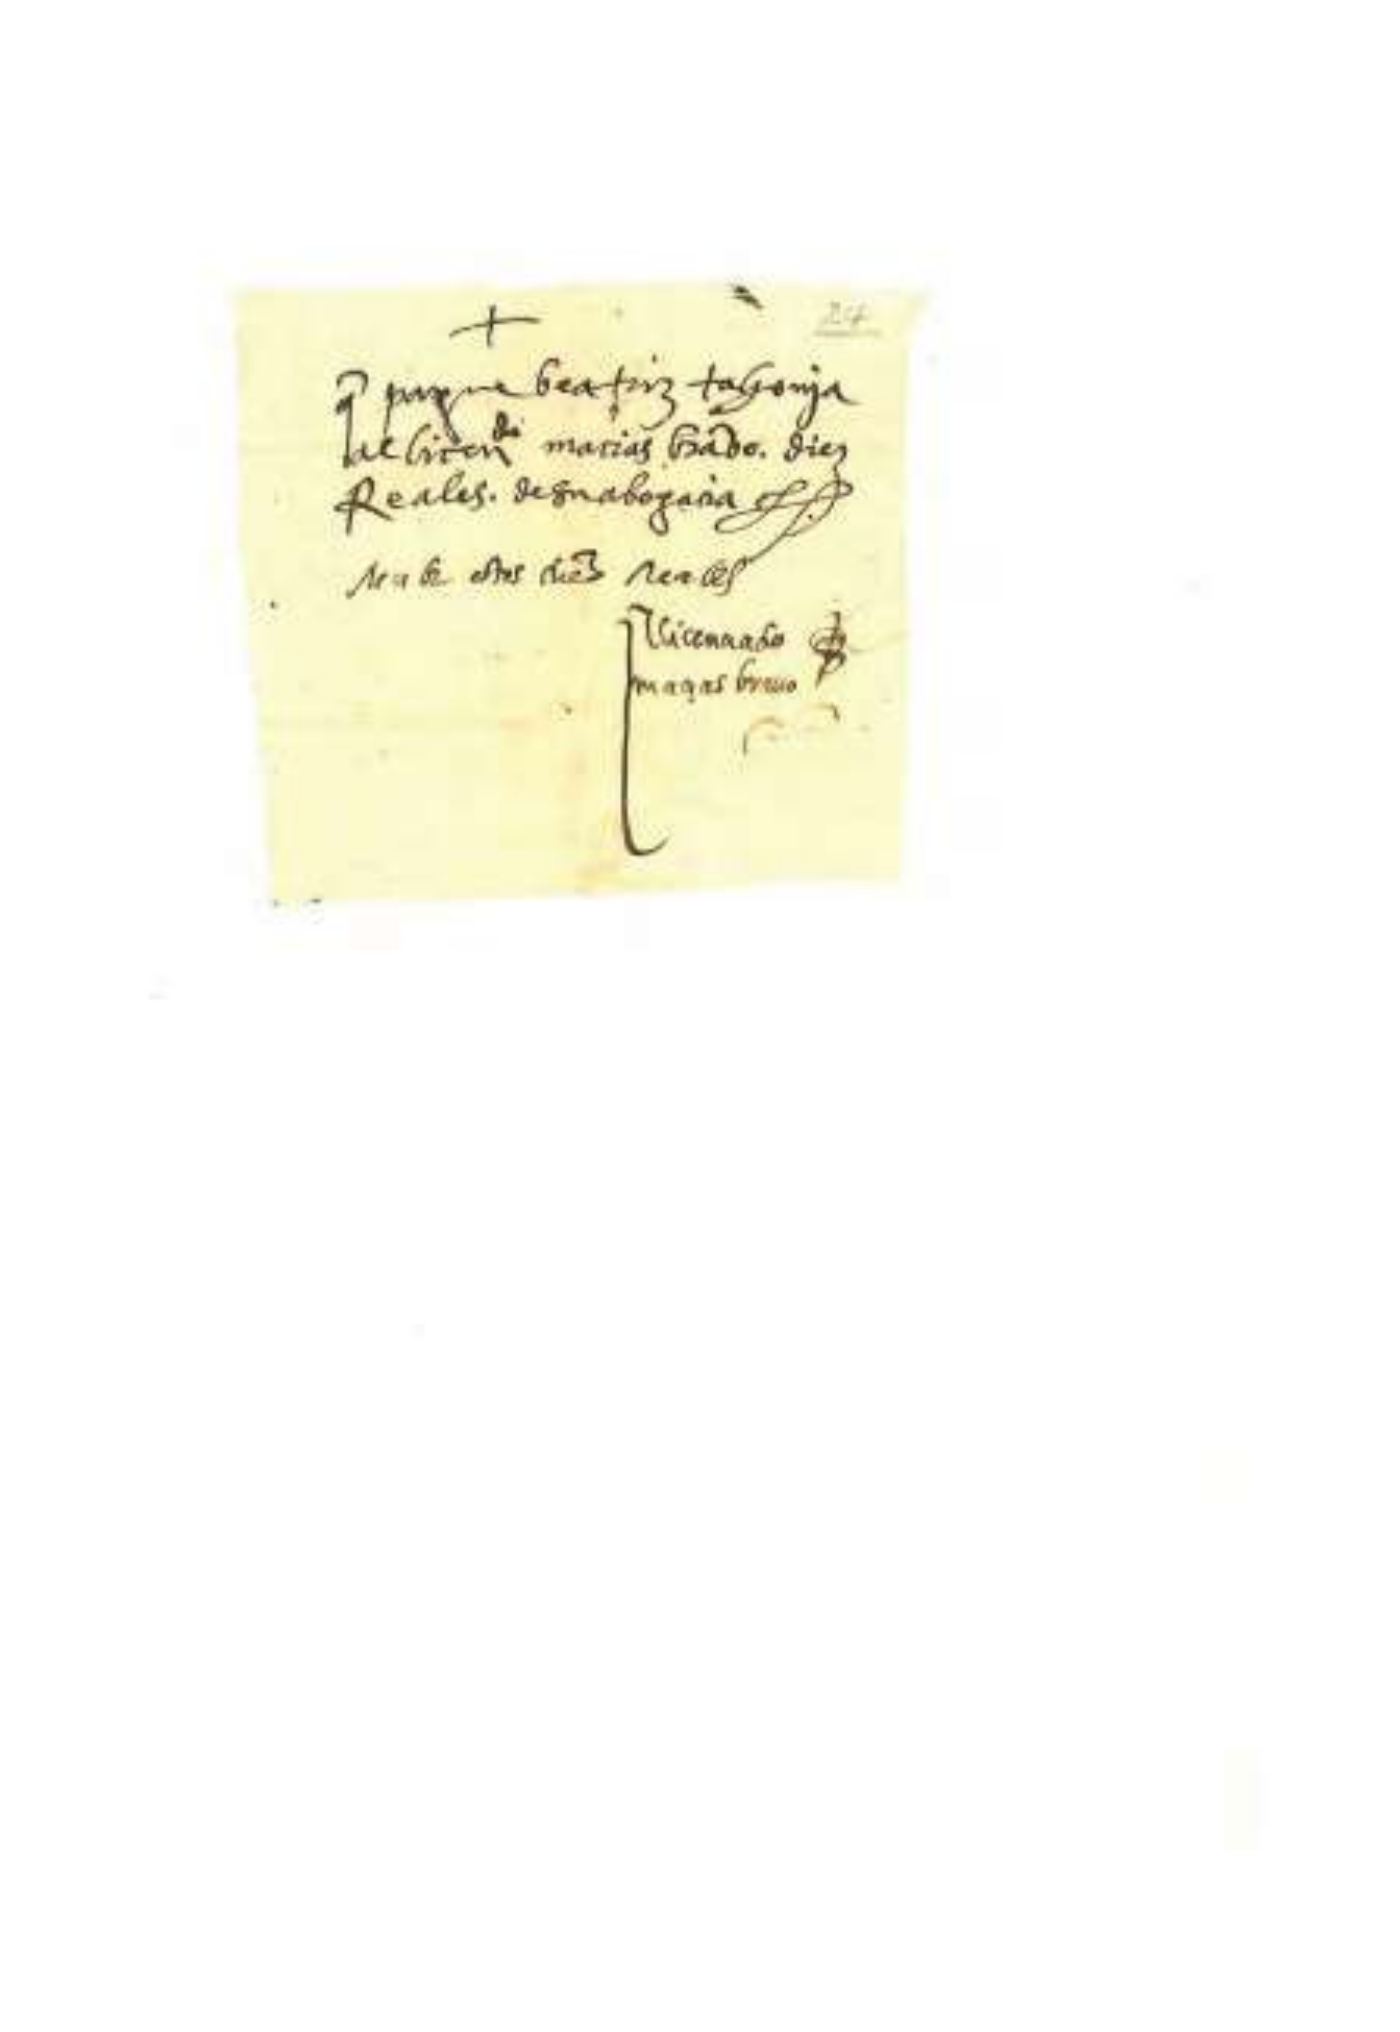 24
q pague beatriz
al licendo macias brado. diez
Reales. de su abogacia
Recebi estos diez Reales
El licenciado
maçias bravo